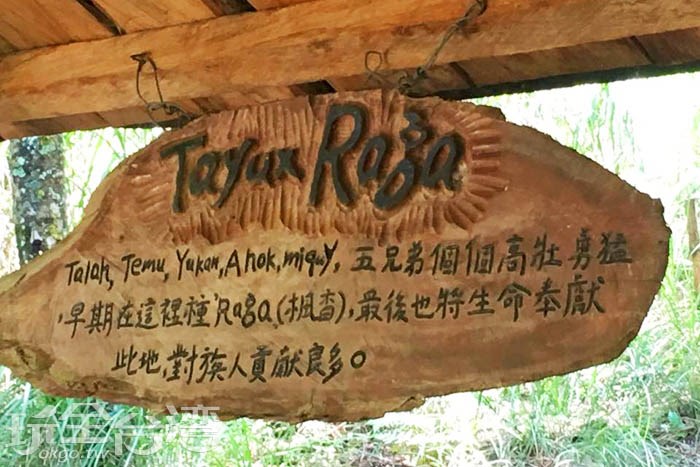 Tayux Raga
Talah, Temu, Yukan, Ahok, miquy, 五兄弟個個高壯勇猛
，早期在這裡種'Raga(楓香)，最後也將生命奉獻
此地，對族人貢獻良多。
玩全台灣
okgo.tw